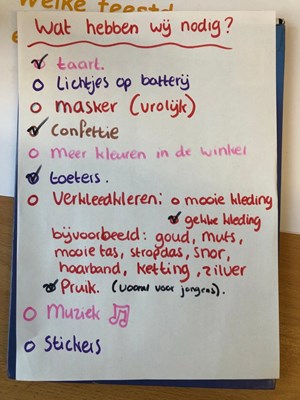 Welke feestd
Wat hebben wij nodig?
taart.
Lichtjes op batterij
masker (vrolijk)
Confettie
meer kleuren in de winkel
toeters.
Verkleedkleren: mooie kleding
gekke kleding
bijvoorbeeld: goud, muts,
mooie tas, stropdas, snor,
haarband, ketting, zilver
Pruik. (vooral voor jongens).
Muziek
Stickers